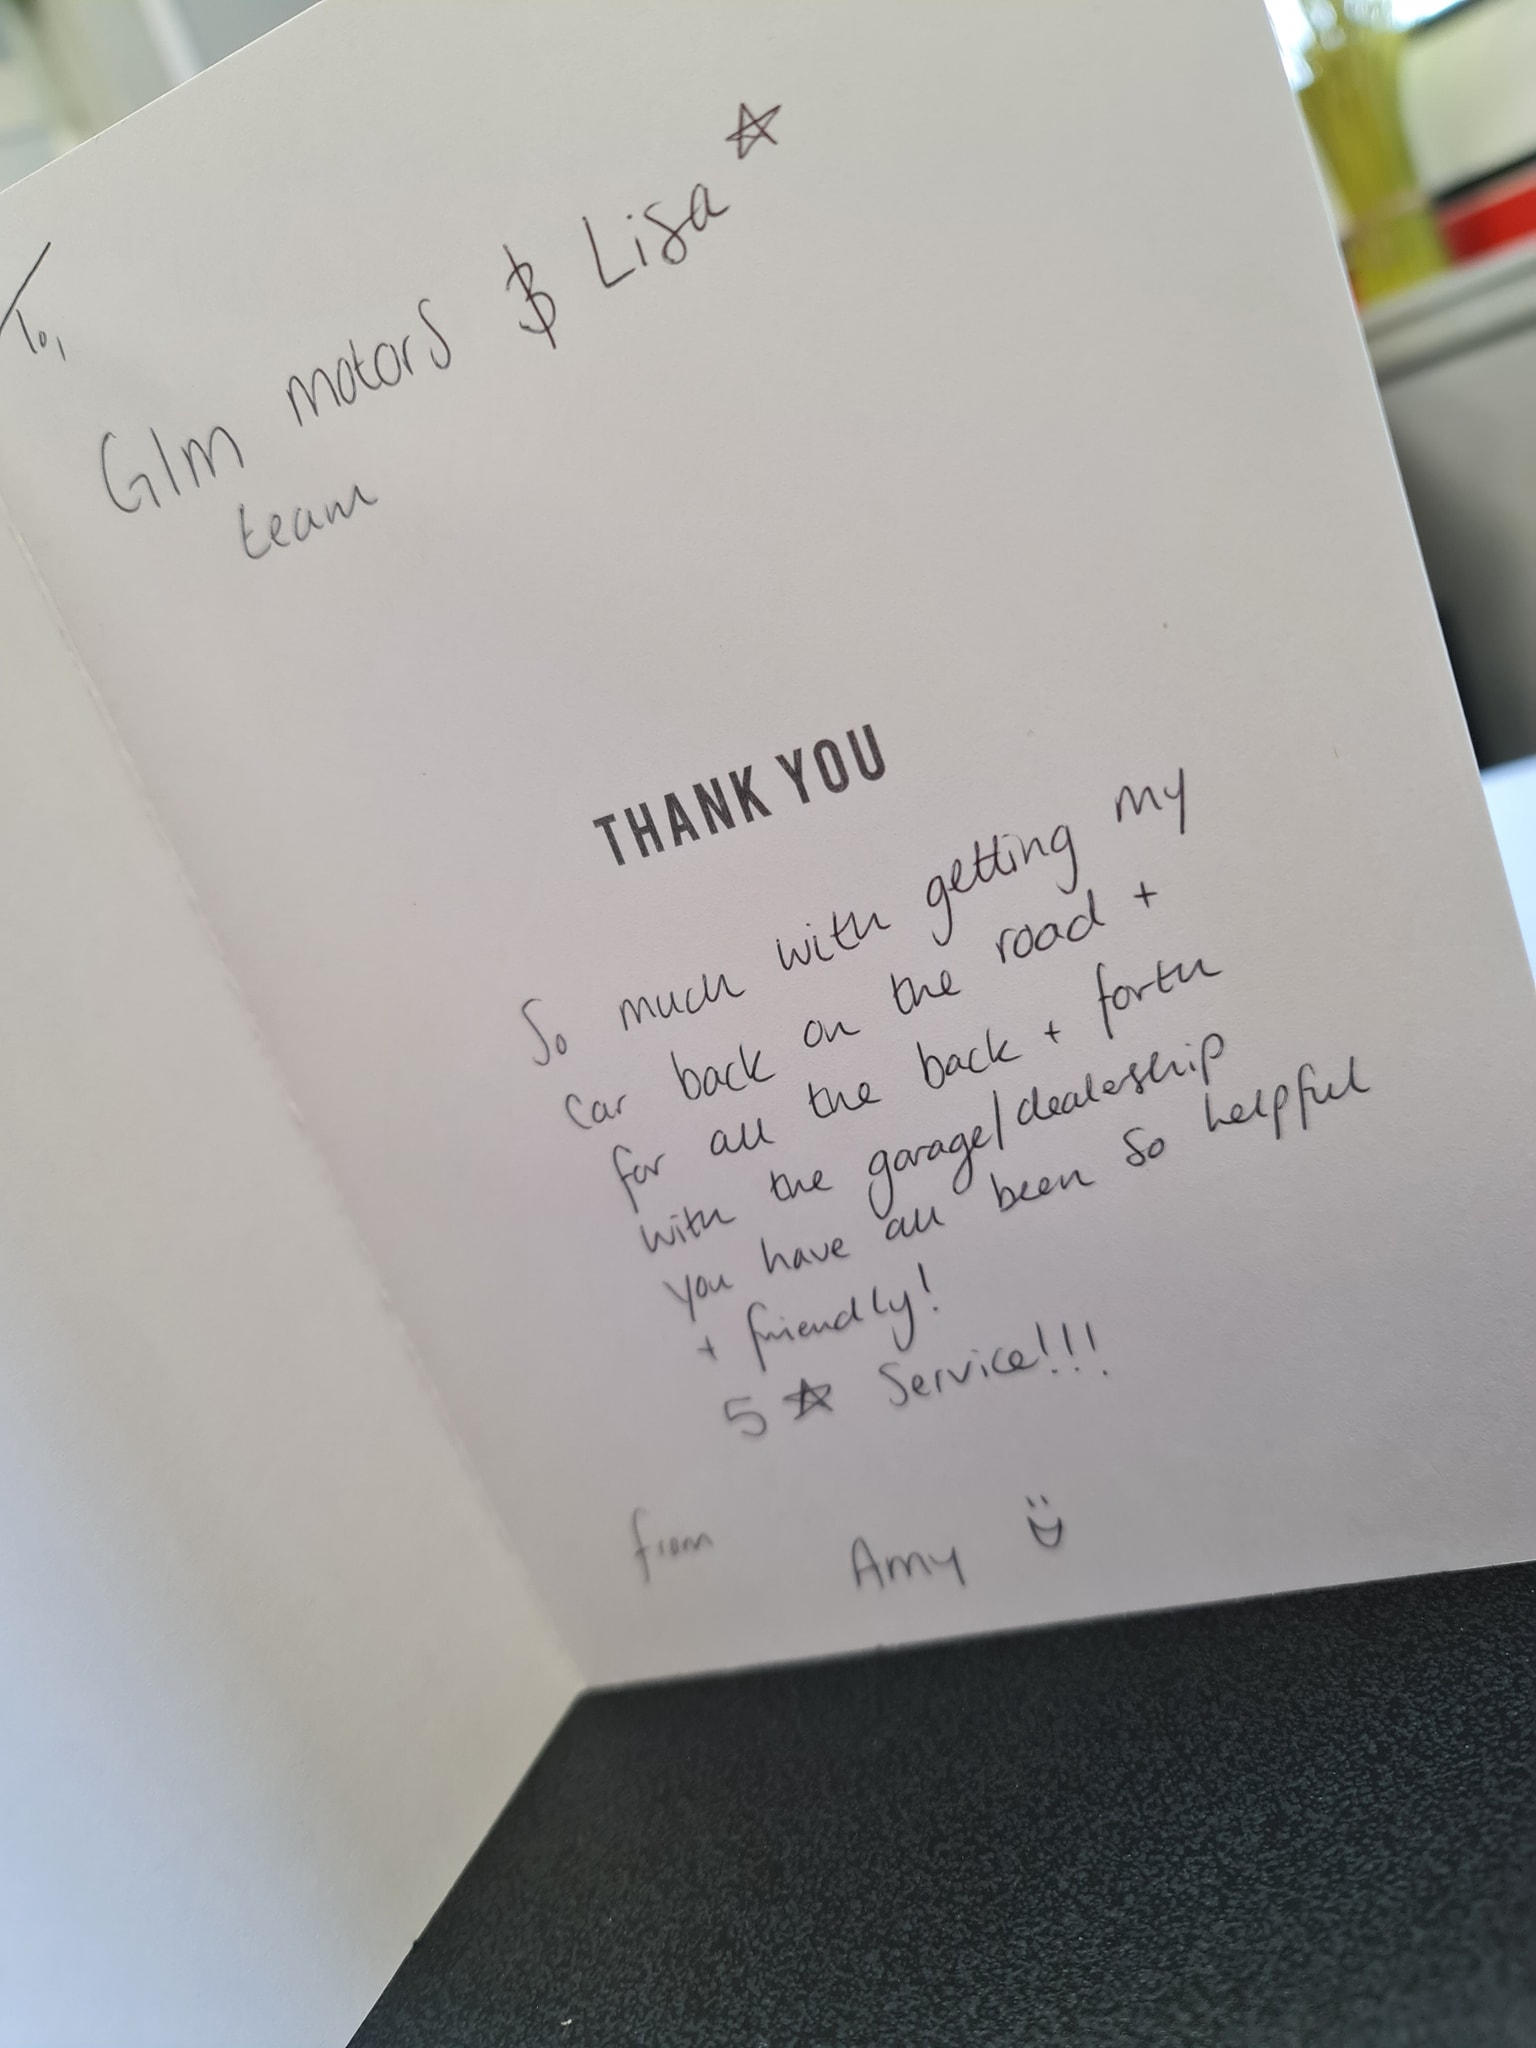 To,
Glm motors & Lisa ☆
team
THANK YOU
So much with getting my
car back on the road +
for all the back + forth
with the garage/dealership
you have all been so helpful
+ friendly!
5 ☆ Service!!!
from Amy